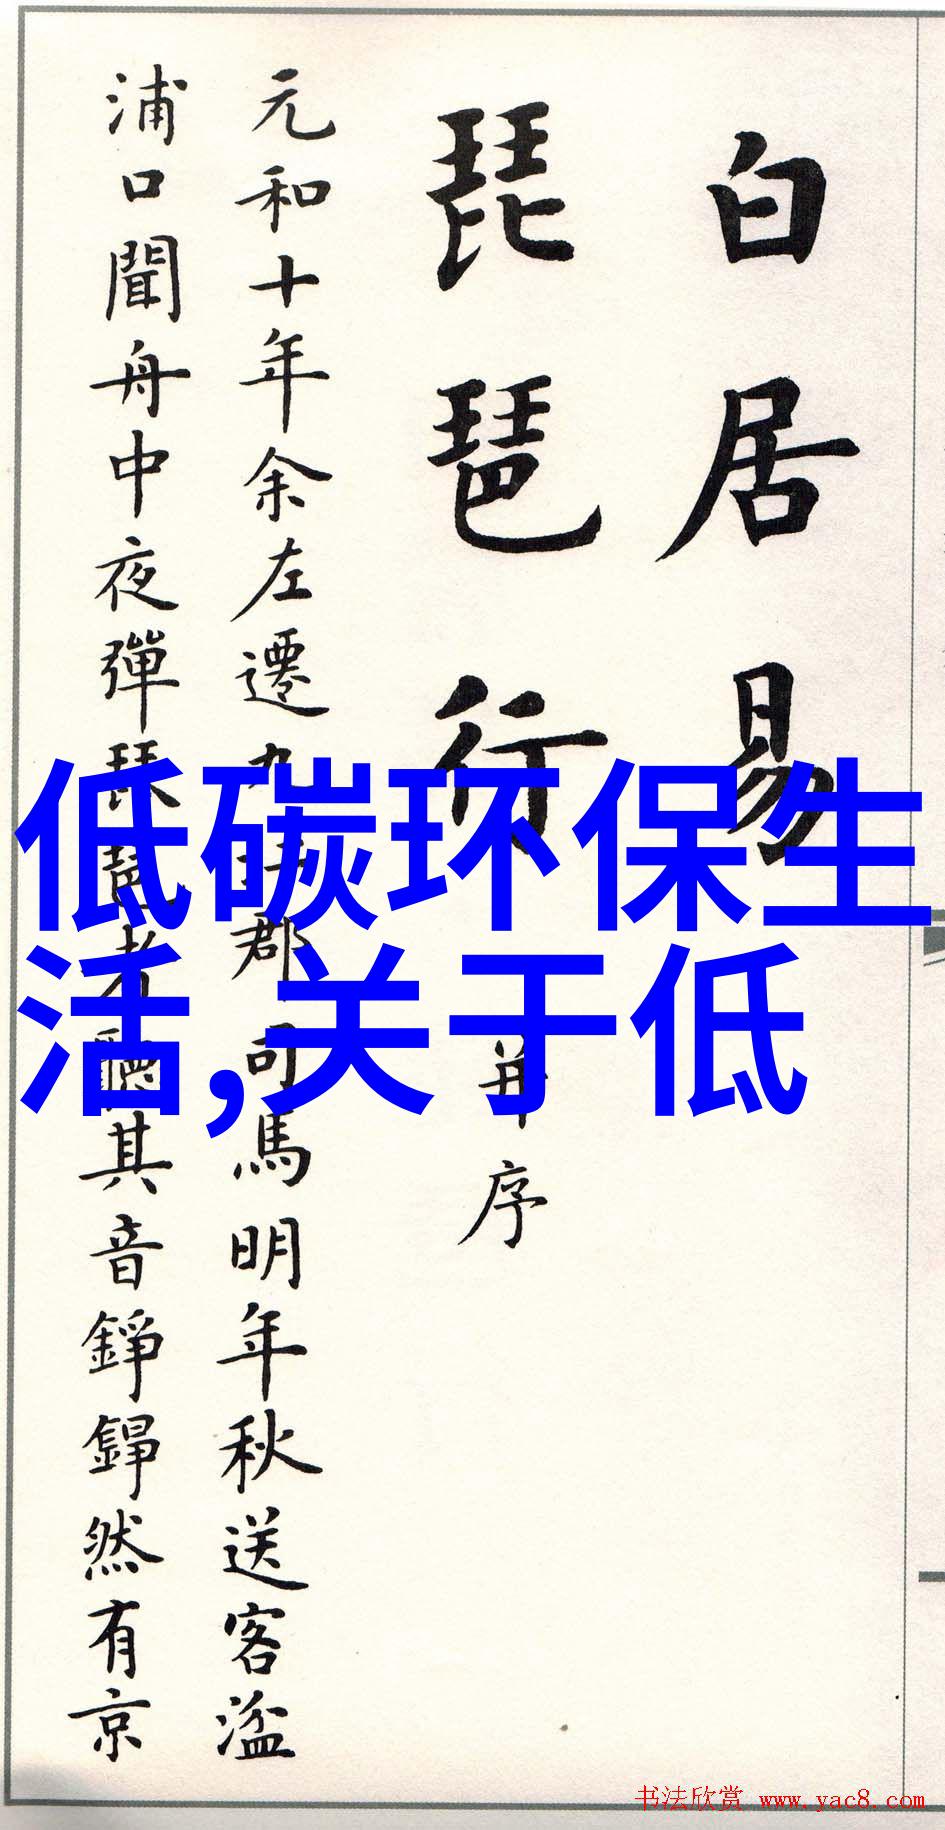 白居易
琵琶行 并序
元和十年余左遷九江郡司馬明年秋送客湓
浦口聞舟中夜彈琵琶者聽其音錚錚然有京
低碳环保生
活,关于低
书法欣赏 www.yac8.com